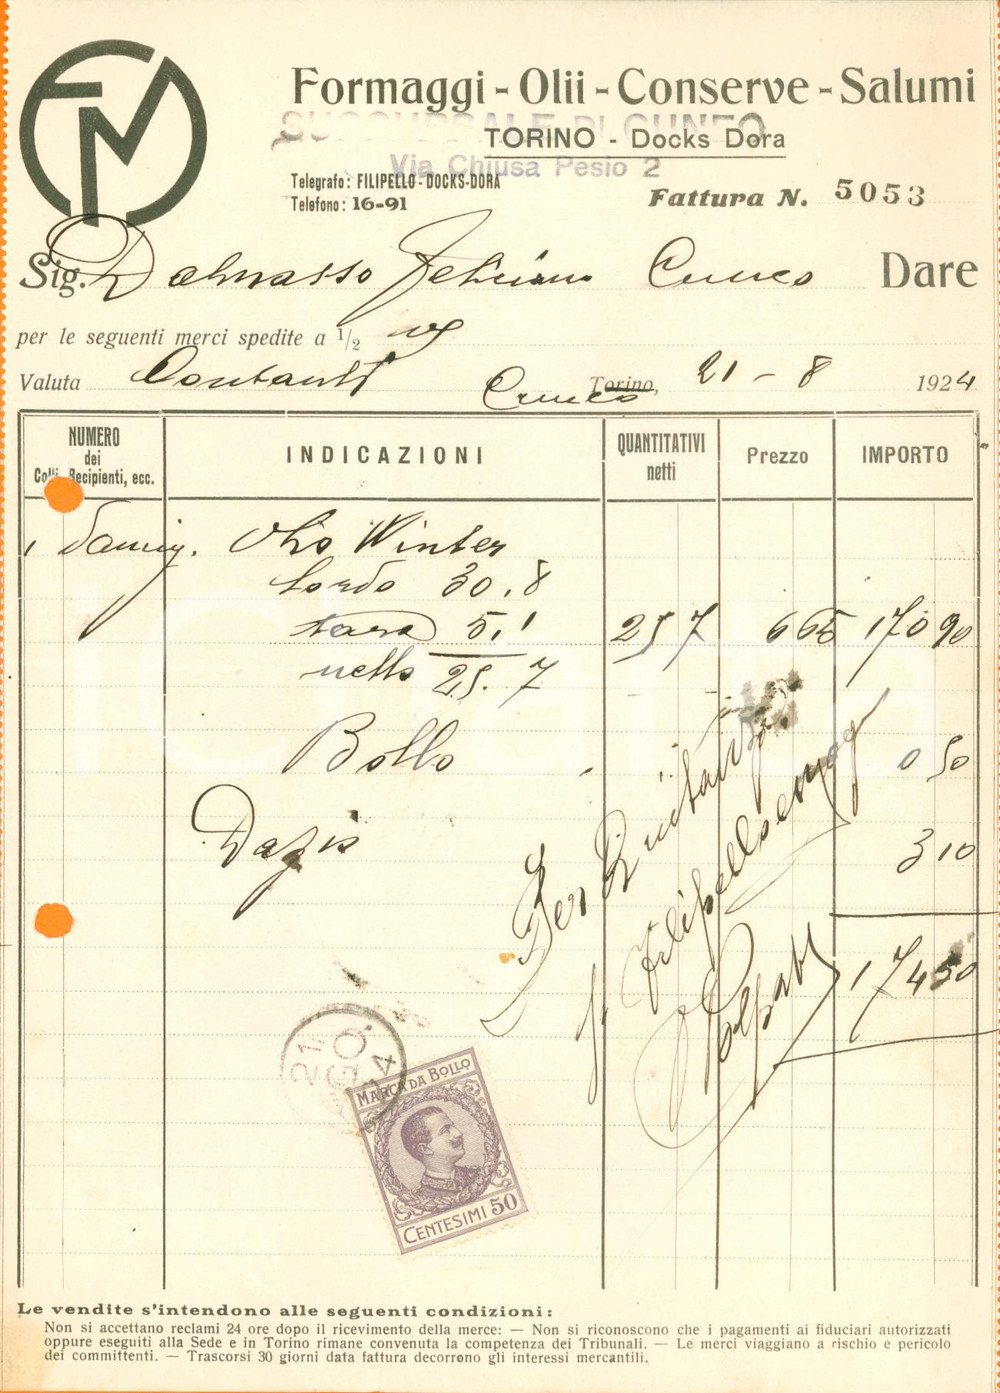 FM
Formaggi - Olii - Conserve - Salumi
SUCCURSALE DI CUNEO
TORINO - Docks Dora
Via Chiusa Pesio 2
Telegrafo: FILIPELLO - DOCKS-DORA
Telefono: 16-91
Fattura N. 5053
Sig. Dalmasso Feliciano Cuneo Dare
per le seguenti merci spedite a ½
Valuta Contanti Cuneo Torino, 21 - 8 1924
NUMERO dei Colli, Recipienti, ecc.
INDICAZIONI
QUANTITATIVI netti
Prezzo
IMPORTO
1 Damig. Olio Winter
lordo 30,8
tara 5,1 25 7 665 170 90
netto 25.7
Bollo 0 50
Dazio 3 10
174 50
Per Quitanza
Filipello
21 AGO. 24
MARCA DA BOLLO
CENTESIMI 50
Le vendite s'intendono alle seguenti condizioni:
Non si accettano reclami 24 ore dopo il ricevimento della merce: — Non si riconoscono che i pagamenti ai fiduciari autorizzati
oppure eseguiti alla Sede e in Torino rimane convenuta la competenza dei Tribunali. — Le merci viaggiano a rischio e pericolo
dei committenti. — Trascorsi 30 giorni data fattura decorrono gli interessi mercantili.